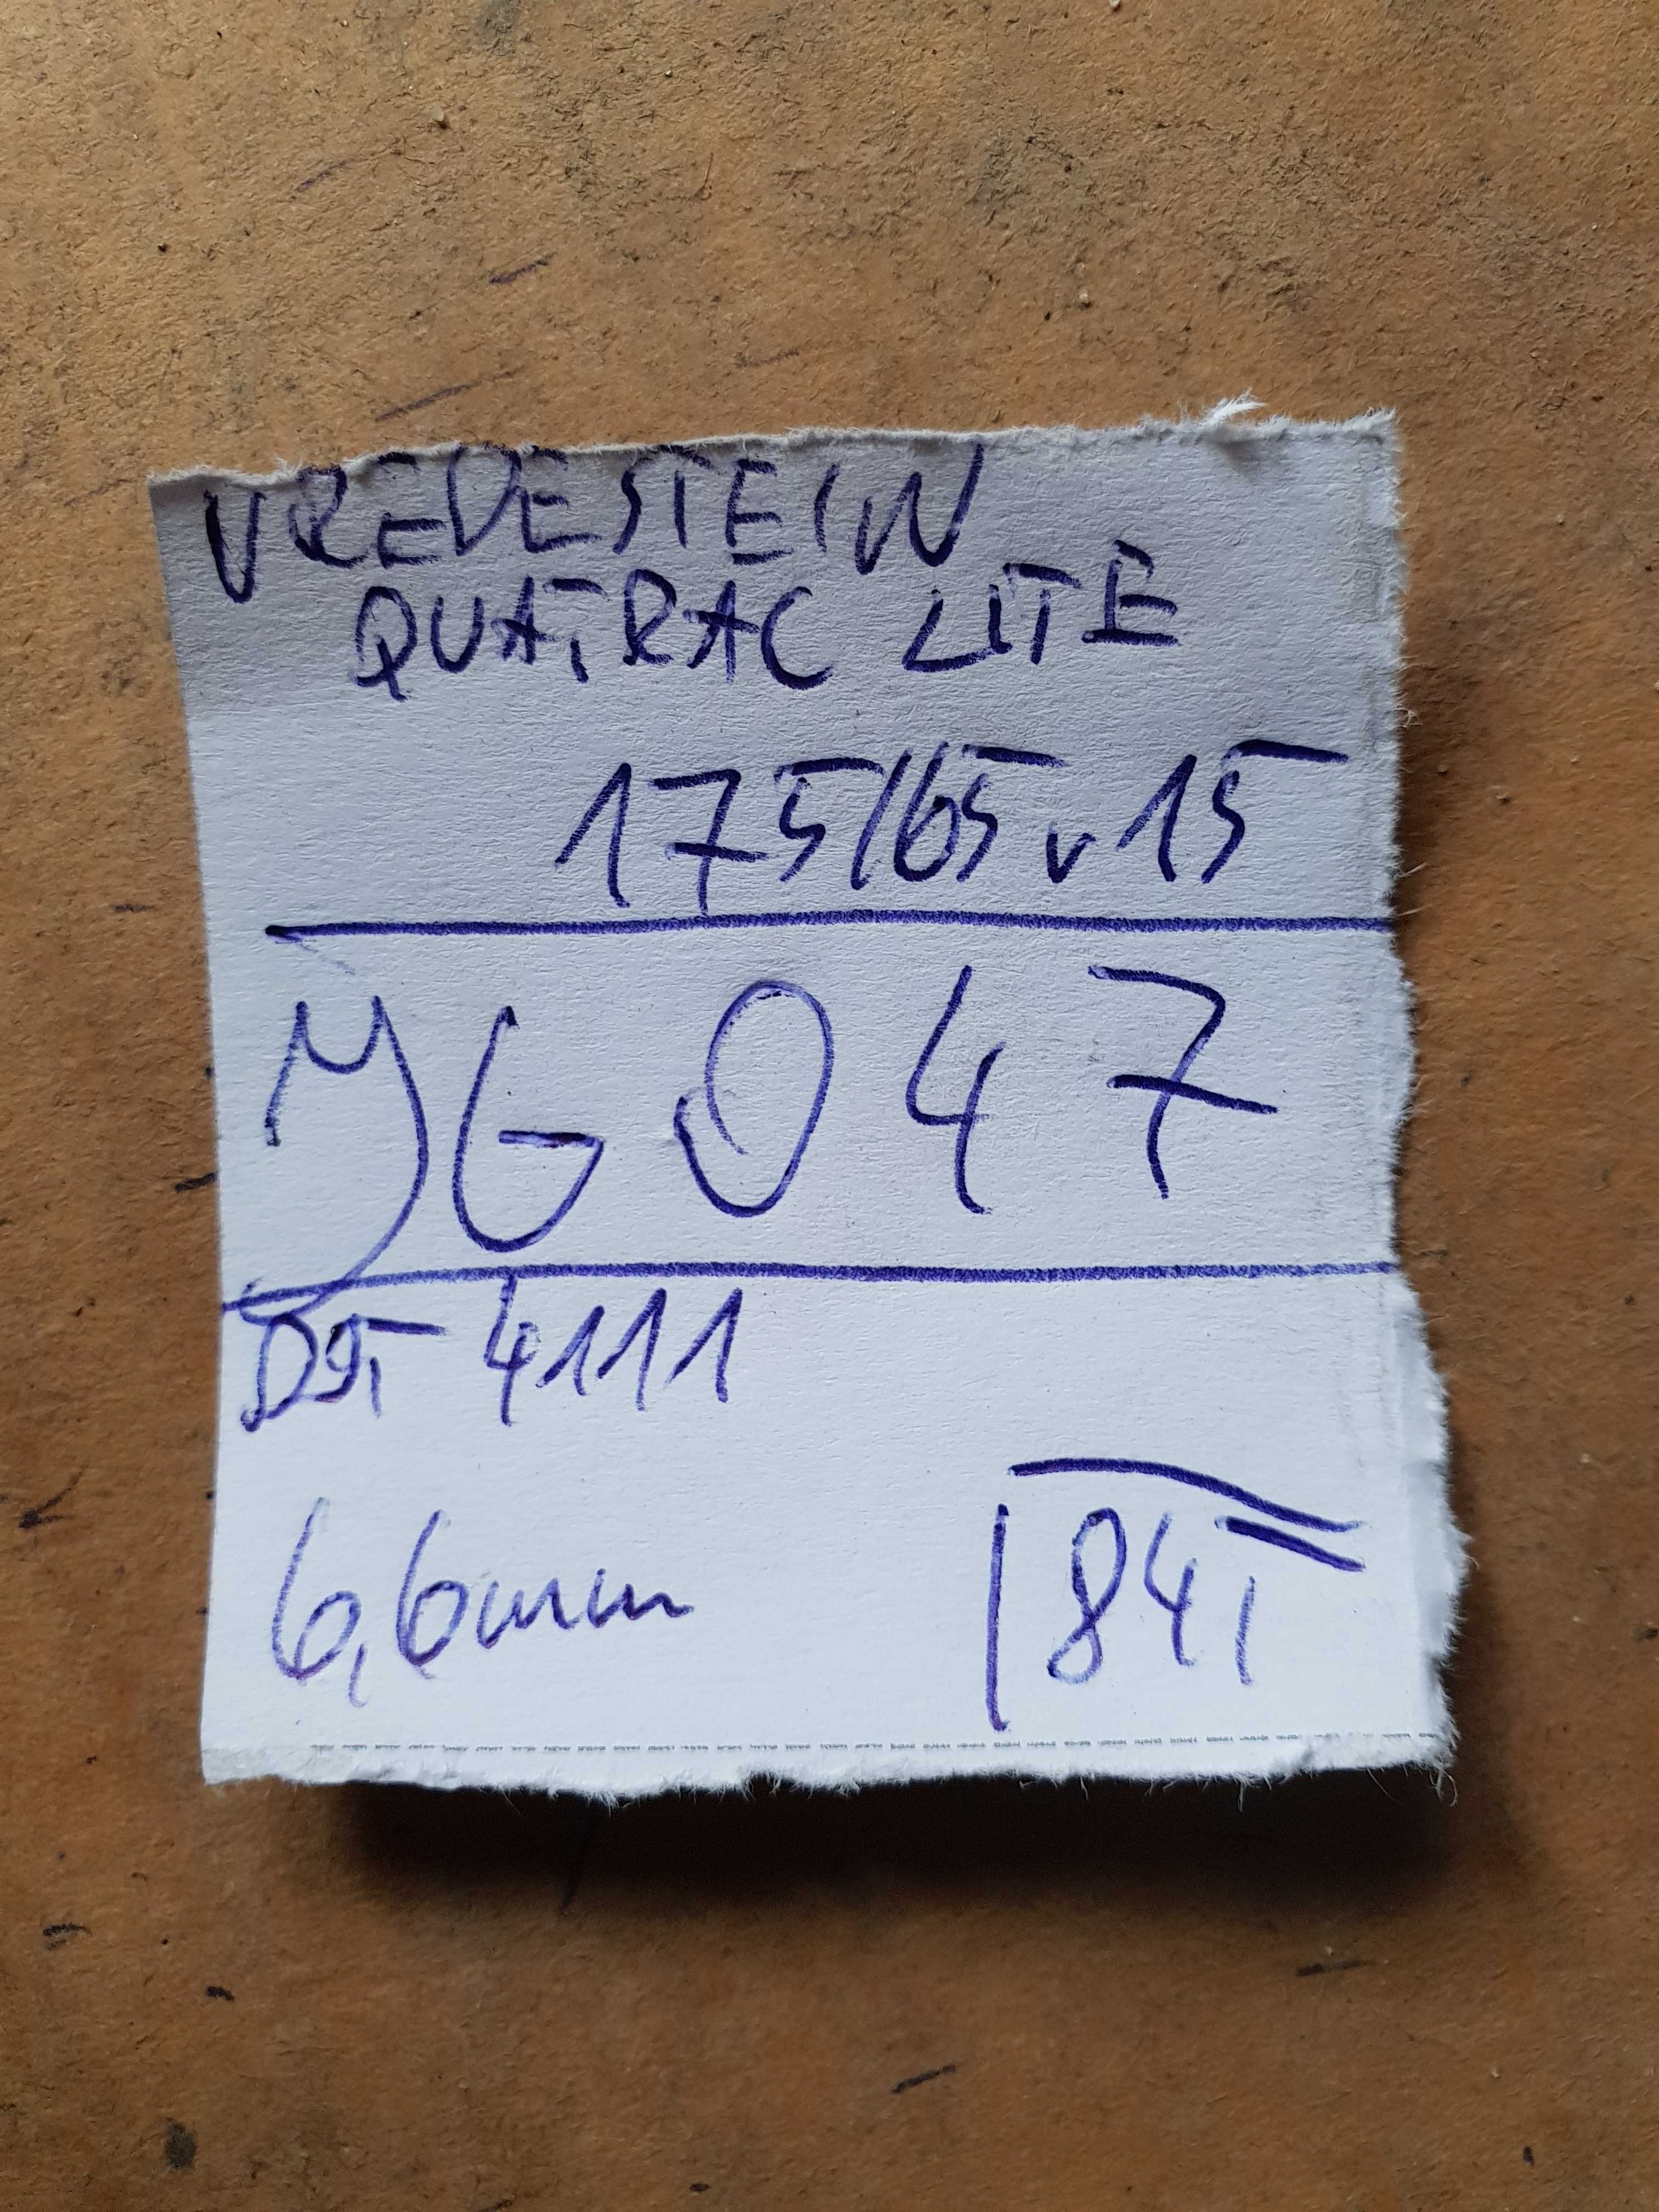 VREDESTEIN
QUATRAC LITE
175/65 r 15
YG 047
DOT 4111
6,6mm
84T